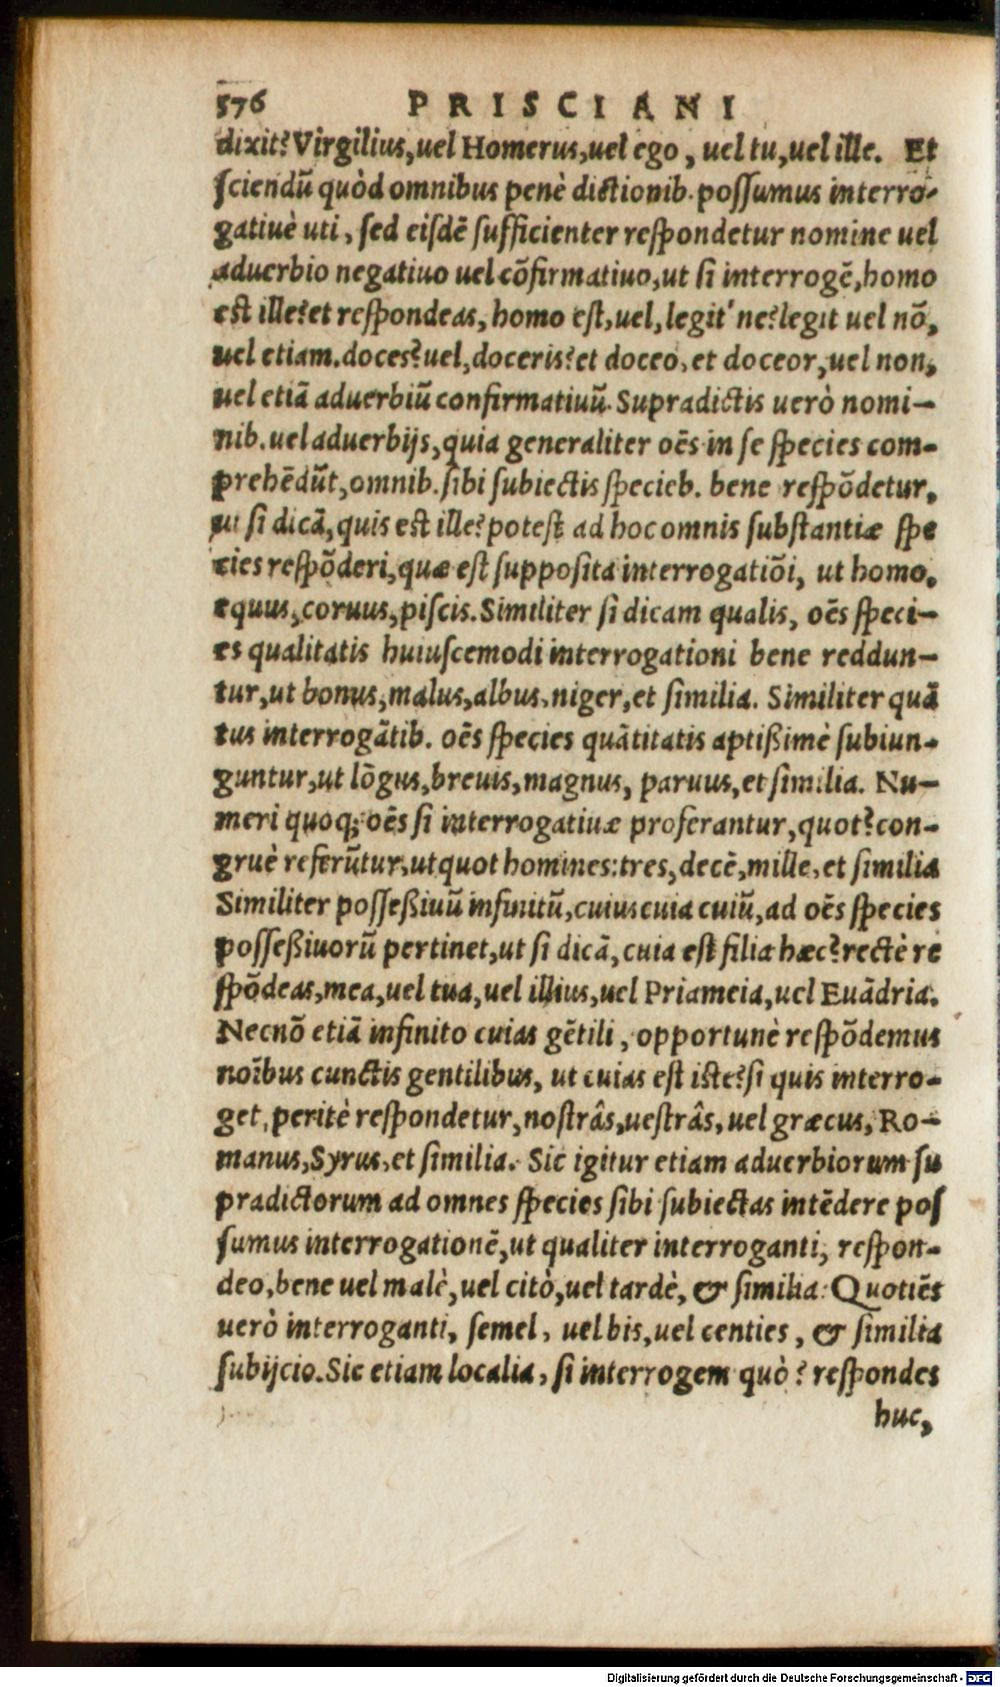 576 PRISCIANI
dixit? Virgilius, uel Homerus, uel ego, uel tu, uel ille. Et
ſciendũ quòd omnibus penè dictionib. poſſumus interro-
gatiuè uti, ſed eiſdẽ ſufficienter reſpondetur nomine uel
aduerbio negatiuo uel cõfirmatiuo, ut ſi interrogẽ, homo
est ille? et reſpondeas, homo eſt, uel, legit' ne? legit uel nõ,
uel etiam. doces? uel, doceris? et doceo, et doceor, uel non,
uel etiã aduerbiũ confirmatiuũ. Supradictis uerò nomi-
nib. uel aduerbijs, quia generaliter oẽs in ſe ſpecies com-
prehẽdũt, omnib. ſibi ſubiectis ſpecieb. bene reſpõdetur,
ut ſi dicã, quis est ille? poteſt ad hoc omnis ſubſtantiæ ſpe
cies reſpõderi, quæ eſt ſuppoſita interrogatiõi, ut homo,
equus, coruus, piſcis. Similiter ſi dicam qualis, oẽs ſpeci-
es qualitatis huiuſcemodi interrogationi bene reddun-
tur, ut bonus, malus, albus, niger, et ſimilia. Similiter quã
tus interrogãtib. oẽs ſpecies quãtitatis aptißimè ſubiun-
guntur, ut lõgus, breuis, magnus, paruus, et ſimilia. Nu-
meri quoq; oẽs ſi interrogatiuæ proferantur, quot? con-
gruè referũtur, ut quot homines: tres, decẽ, mille, et ſimilia
Similiter poſſeßiuũ infinitũ, cuius cuia cuiũ, ad oẽs ſpecies
poſſeßiuorũ pertinet, ut ſi dicã, cuia eſt filia hæc? rectè re
ſpõdeas, mea, uel tua, uel illius, uel Priameia, uel Euãdria.
Necnõ etiã infinito cuias gẽtili, opportunè reſpõdemus
noĩbus cunctis gentilibus, ut cuias eſt iſte? ſi quis interro-
get, peritè reſpondetur, noſtrâs, ueſtrâs, uel græcus, Ro-
manus, Syrus, et ſimilia. Sic igitur etiam aduerbiorum ſu
pradictorum ad omnes ſpecies ſibi ſubiectas intẽdere poſ
ſumus interrogationẽ, ut qualiter interroganti, reſpon-
deo, bene uel malè, uel citò, uel tardè, & ſimilia: Quotiẽs
uerò interroganti, ſemel, uel bis, uel centies, & ſimilia
ſubijcio. Sic etiam localia, ſi interrogem quò? reſpondes
huc,
Digitalisierung gefördert durch die Deutsche Forschungsgemeinschaft - DFG